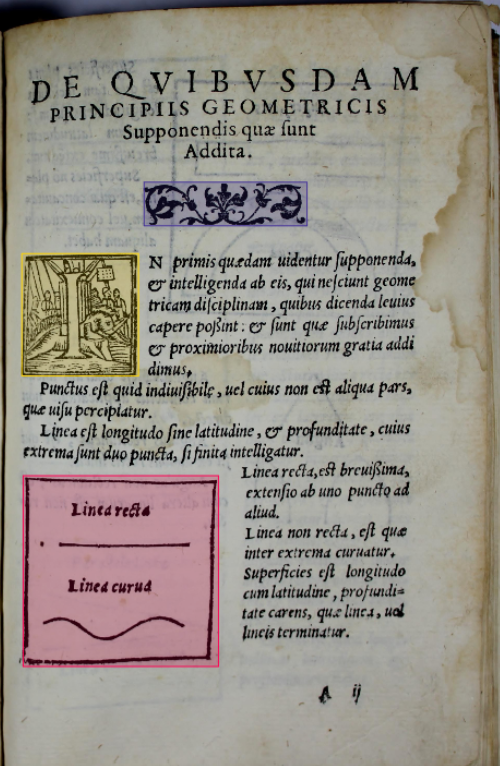 DE QVIBVSDAM
PRINCIPIIS GEOMETRICIS
Supponendis quæ ſunt
Addita.
IN primis quædam uidentur ſupponenda,
& intelligenda ab eis, qui neſciunt geome
tricam diſciplinam, quibus dicenda leuius
capere poßint: & ſunt quæ ſubſcribimus
& proximioribus nouitiorum gratia addi
dimus.
Punctus eſt quid indiuiſibile, uel cuius non eſt aliqua pars,
quæ uiſu percipiatur.
Linea eſt longitudo ſine latitudine, & profunditate, cuius
extrema ſunt duo puncta, ſi finita intelligatur.
Linea recta, eſt breuißima,
extenſio ab uno puncto ad
aliud.
Linea non recta, eſt quæ
inter extrema curuatur.
Superficies eſt longitudo
cum latitudine, profundi=
tate carens, quæ linea, uel
lineis terminatur.
Linea recta
Linea curua
A ij